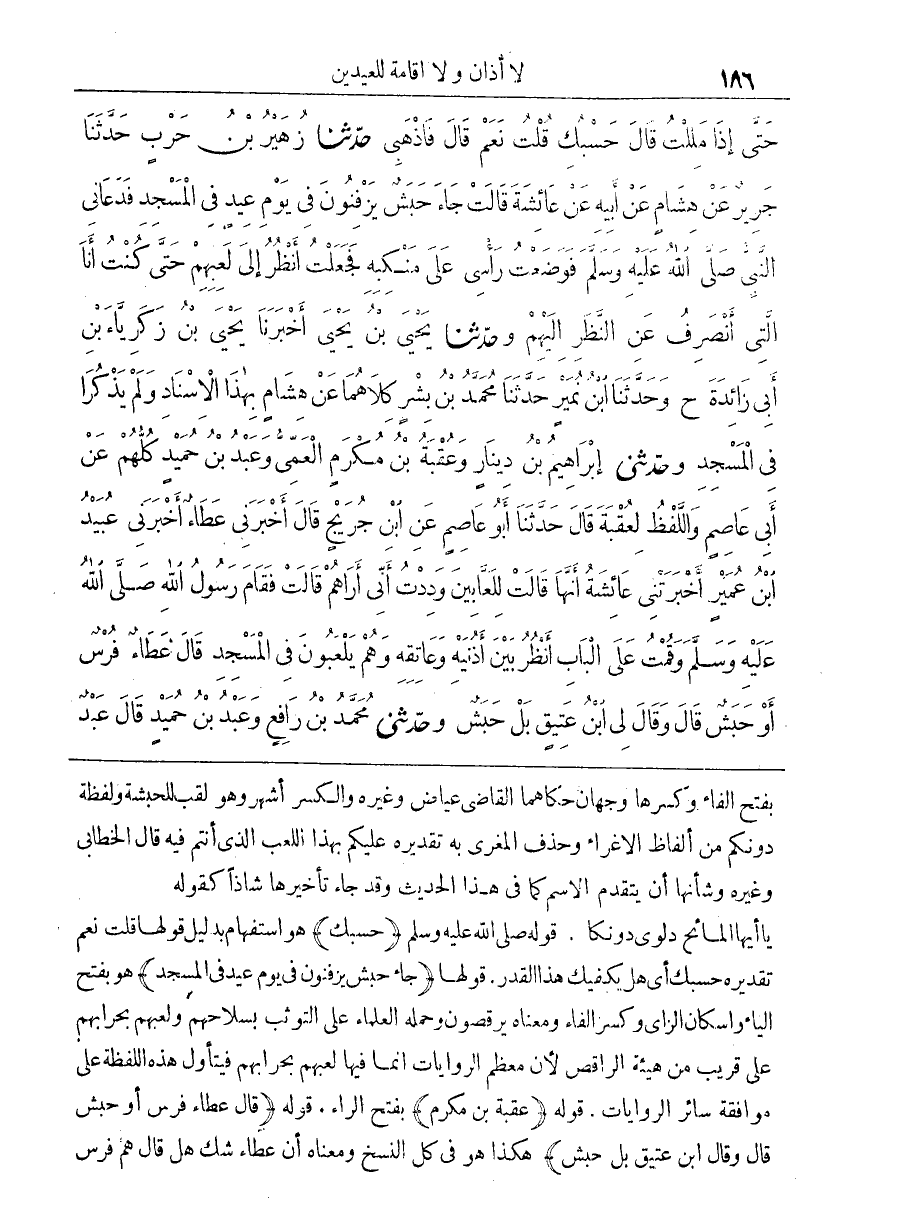 ١٨٦ لا أذان ولا اقامة للعيدين
حَتَّى إِذَا مَلِلْتُ قَالَ حَسْبُكِ قُلْتُ نَعَمْ قَالَ فَاذْهَبِى حدّثنا زُهَيْرُ بْنُ حَرْبٍ حَدَّثَنَا
جَرِيرٌ عَنْ هِشَامٍ عَنْ أَبِيهِ عَنْ عَائِشَةَ قَالَتْ جَاءَ حَبَشٌ يَزْفِنُونَ فِى يَوْمِ عِيدٍ فِى الْمَسْجِدِ فَدَعَانِى
النَّبِىُّ صَلَّى اللهُ عَلَيْهِ وَسَلَّمَ فَوَضَعْتُ رَأْسِى عَلَى مَنْكِبِهِ فَجَعَلْتُ أَنْظُرُ إِلَى لَعِبِهِمْ حَتَّى كُنْتُ أَنَا
الَّتِى أَنْصَرِفُ عَنِ النَّظَرِ إِلَيْهِمْ وحدّثنا يَحْيَى بْنُ يَحْيَى أَخْبَرَنَا يَحْيَى بْنُ زَكَرِيَّاءَ بْنِ
أَبِى زَائِدَةَ ح وَحَدَّثَنَا ابْنُ نُمَيْرٍ حَدَّثَنَا مُحَمَّدُ بْنُ بِشْرٍ كِلَاهُمَا عَنْ هِشَامٍ بِهٰذَا الْاِسْنَادِ وَلَمْ يَذْكُرَا
فِى الْمَسْجِدِ وحدّثنى إِبْرَاهِيمُ بْنُ دِينَارٍ وَعُقْبَةُ بْنُ مُكْرَمٍ الْعَمِّىُّ وَعَبْدُ بْنُ حُمَيْدٍ كُلُّهُمْ عَنْ
أَبِى عَاصِمٍ وَاللَّفْظُ لِعُقْبَةَ قَالَ حَدَّثَنَا أَبُو عَاصِمٍ عَنِ ابْنِ جُرَيْجٍ قَالَ أَخْبَرَنِى عَطَاءٌ أَخْبَرَنِى عُبَيْدُ
ابْنُ عُمَيْرٍ أَخْبَرَتْنِى عَائِشَةُ أَنَّهَا قَالَتْ لِلَعَّابِينَ وَدِدْتُ أَنِّى أَرَاهُمْ قَالَتْ فَقَامَ رَسُولُ اللهِ صَلَّى اللهُ
عَلَيْهِ وَسَلَّمَ وَقُمْتُ عَلَى الْبَابِ أَنْظُرُ بَيْنَ أُذُنَيْهِ وَعَاتِقِهِ وَهُمْ يَلْعَبُونَ فِى الْمَسْجِدِ قَالَ عَطَاءٌ فُرْسٌ
أَوْ حَبَشٌ قَالَ وَقَالَ لِى ابْنُ عَتِيقٍ بَلْ حَبَشٌ وحدّثنى مُحَمَّدُ بْنُ رَافِعٍ وَعَبْدُ بْنُ حُمَيْدٍ قَالَ عَبْدٌ
بفتح الفاء وكسرها وجهان حكاهما القاضى عياض وغيره والكسر أشهر وهو لقب للحبشة ولفظة
دونكم من ألفاظ الاغراء وحذف المغرى به تقديره عليكم بهذا اللعب الذى أنتم فيه قال الخطابى
وغيره وشأنها أن يتقدم الاسم كما فى هذا الحديث وقد جاء تأخيرها شاذاً كقوله
ياأيها المائح دلوى دونكا . قوله صلى الله عليه وسلم ﴿حسبك﴾ هو استفهام بدليل قولها قلت نعم
تقديره حسبك أى هل يكفيك هذا القدر. قولها ﴿جاء حبش يزفنون فى يوم عيد فى المسجد﴾ هو بفتح
الياء واسكان الزاى وكسر الفاء ومعناه يرقصون وحمله العلماء على التوثب بسلاحهم ولعبهم بحرابهم
على قريب من هيئة الراقص لأن معظم الروايات انما فيها لعبهم بحرابهم فيتأول هذه اللفظة على
موافقة سائر الروايات . قوله ﴿عقبة بن مكرم﴾ بفتح الراء . قوله ﴿قال عطاء فرس أو حبش
قال وقال ابن عتيق بل حبش﴾ هكذا هو فى كل النسخ ومعناه أن عطاء شك هل قال هم فرس